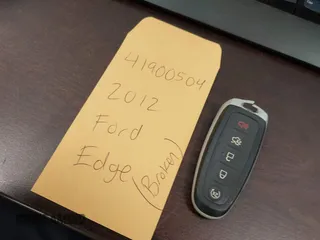 41900504
2012
Ford
Edge
(Broken)